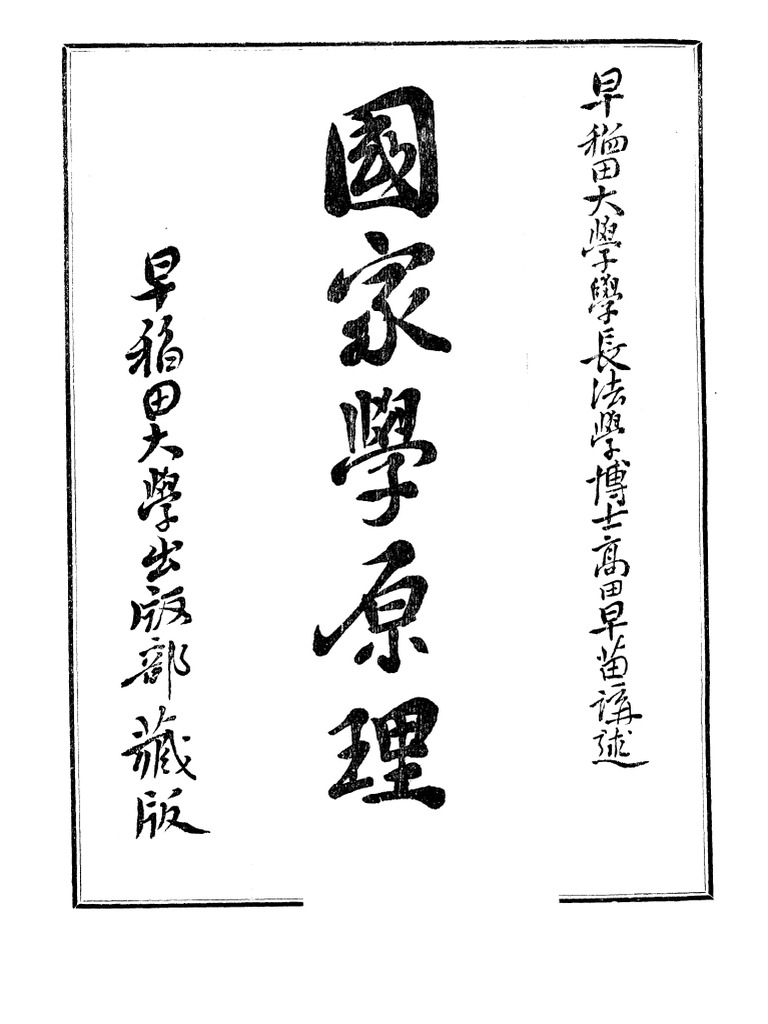 早稲田大學學長法學博士高田早苗講述
國家學原理
早稲田大學出版部藏版